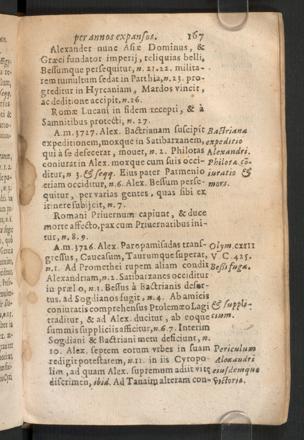 per annos expansos. 167
Alexander nunc Asiæ Dominus, &
Græci fundator imperij, reliquias belli,
Bessumque persequitur, n. 21. 22. milita-
rem tumultum sedat in Parthia, n. 23. pro-
greditur in Hyrcaniam, Mardos vincit,
ac deditione accipit. n. 26.
Romæ Lucani in fidem recepti, & à
Samnitibus protecti, n. 27.
A. m. 3727. Alex. Bactrianam suscipit Bactriana
expeditionem, moxque in Satibarzanem, expeditio
qui à se defecerat, mouet, n. 2. Philotas Alexandri.
coniurat in Alex. morque cum suis occi- Philotæ cō-
ditur, n. 3. & seqq. Eius pater Parmenio iuratio &
etiam occiditur, n. 6. Alex. Bessum perse- mors.
quitur, per varias gentes, quas sibi ex
itinere subijcit, n. 7.
Romani Priuernum capiunt, & duce
morte affecto, pax cum Priuernatibus ini-
tur, n. 8. 9.
A. m. 3726. Alex. Paropamisadas trans- Olym. cxiii
gressus, Caucasum, Taurumque superat, V. C. 425.
n. 1. Ad Promethei rupem aliam condit Bessi fuga.
Alexandriam, n. 1. Satibarzanes occiditur
in prælio, n. 1. Bessus à Bactrianis deser-
tus, ad Sogdianos fugit, n. 4. Ab amicis
coniuratis comprehensus Ptolemæo Lagi & supple-
traditur, & ad Alex. ducitur, ab coque cium.
summis supplicijs afficitur, n. 6. 7. Interim
Sogdiani & Bactriani metu deficiunt, n.
10. Alex. septem eorum vrbes in suam Periculum
redigit potestatem, n. 11. in iis Cyropo- Alexandri
lim, ad quam Alex. supremum adiit vitæ eiusdemque
discrimen, ibid. Ad Tanaim alteram con- victoria.